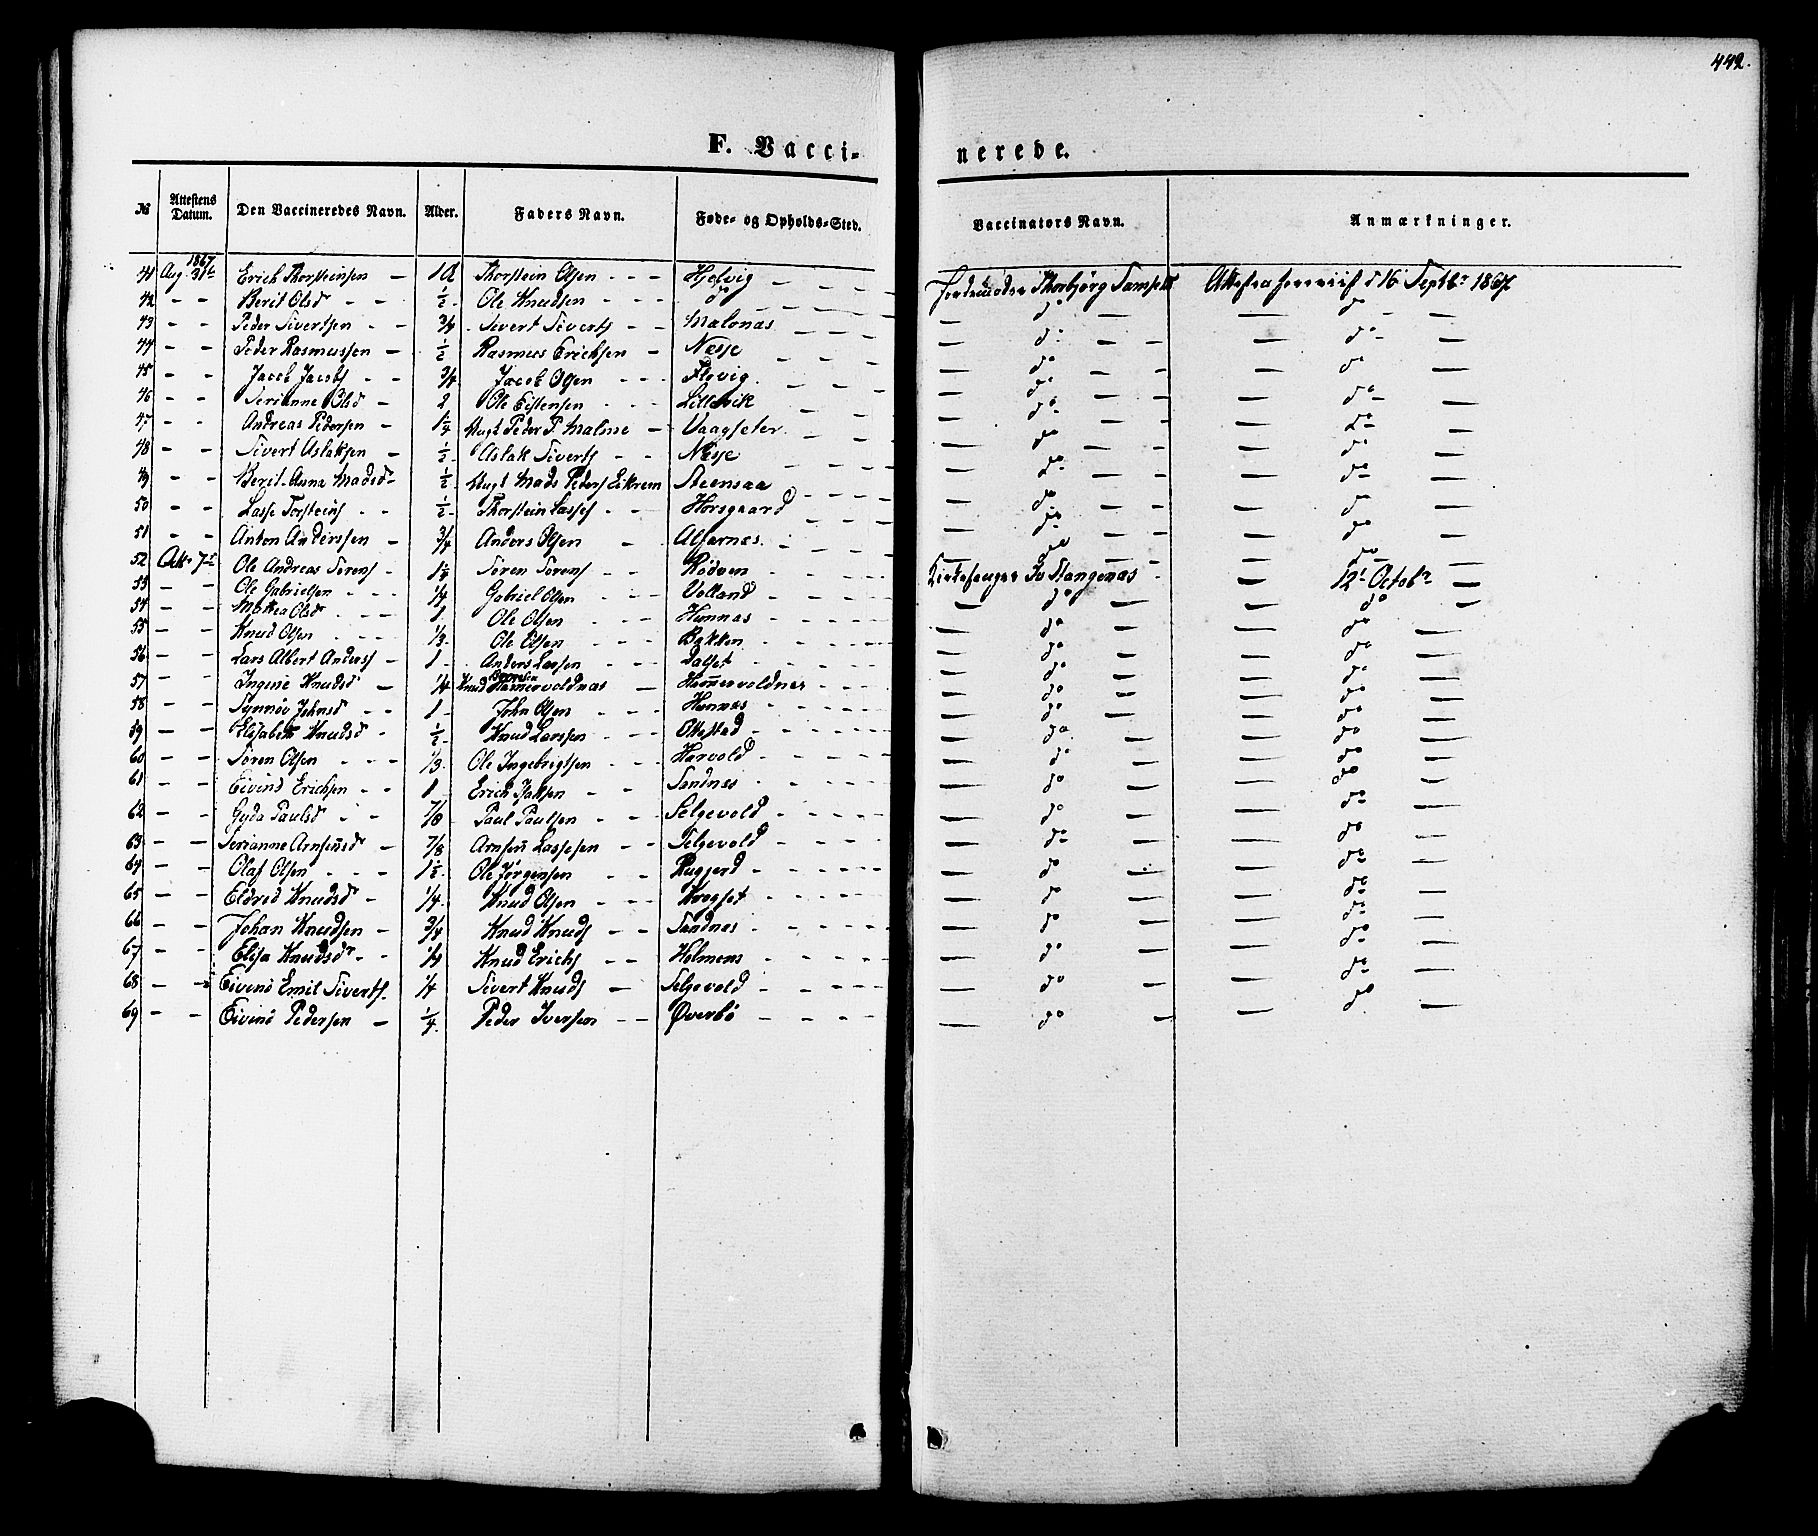 442.
F. Vaccinerede.
№ Attestens Datum. Den Vaccineredes Navn. Alder. Faders Navn. Føde- og Opholds-Sted. Vaccinators Navn. Anmærkninger.
1867
41 Aug 31te Erich Thorsteinsen — Thorstein Olsen - - - Hjelvig Jordemoder Thorbjørg d 16 Septbr 1867
42 - - Berit Olsd - - ½ Ole Knudsen - - - do — do — — do —
43 - - Peder Sivertsen - ¾ Sivert Siverts - - Malonæs — do — — do —
44 - - Peder Rasmussen - ½ Rasmus Erichsen - Næsje — do — — do —
45 - - Jacob Jacobs - - ¾ Jacob Olsen - - - Flovig — do — — do —
46 - - Serianne Olsd - 2 Ole Eistensen - - - Lillevik — do — — do —
47 - - Andreas Pedersen - 1¼ Ungk Peder P. Malme - Vaagseter — do — — do —
48 - - Sivert Aslaksen - ½ Aslak Siverts - - Næsje — do — — do —
49 - - Berit-Anna Madsdr ½ Ungk Mads Peders Eikrem Steensaa — do — — do —
50 - - Lasse Torsteins - - ½ Thorstein Lasses - - Horsgaard — do — — do —
51 - - Anton Anderssen - ¾ Anders Olsen - Alfarnæs — do — — do —
52 Octr 7de Ole Andreas Sørens - Søren Sørens - - Rødven Kirkesanger Iv Stangenæs 12t Octobr —
53 - - Ole Gabrielsen - - - ¼ Gabriel Olsen - - - Volland — do — — do —
54 - - Mettea Olsd - - - 1 Ole Olsen - - - Hennæs — do — — do —
55 - - Knud Olsen - - - ⅓ Ole Olsen - - - Bakken — do — — do —
56 - - Lars Albert Anders - 1 Anders Larsen - - - Dalset — do — — do —
57 - - Ingine Knudsd - ¼ Knud Hamervoldnæs - Hamervoldnes — do — — do —
58 - - Synnøv Johnsd - 1 John Olsen - - - Hennæs — do — — do —
59 - - Elisabeth Knudsd - ½ Knud Larssen - - Ottestad — do — — do —
60 - - Søren Olsen - - - ⅓ Ole Ingebrigtsen - - - Horvold — do — — do —
61 - - Eivind Erichsen - - 1 Erich Isaksen - - Sandnes — do — — do —
62 - - Gyda Paulsd - - ⅞ Paul Paulsen - - Selgevold — do — — do —
63 - - Serianne Arnfinsd - ⅞ Arnfin Lassesen - - Selgevold — do — — do —
64 - - Olaf Olsen - - - 1½ Ole Jørgensen - - Rugjerd — do — — do —
65 - - Eldrid Knudsd - ¼ Knud Olsen - - - Krogset — do — — do —
66 - - Johan Knudsen - ¾ Knud Knuds - - Sandnes — do — — do —
67 - - Elisa Knudsdr - - ¼ Knud Erichs - - Holmem — do — — do —
68 - - Eivind Emil Siverts - ¼ Sivert Knuds - Selgevold — do — — do —
69 - - Eivind Pedersen - ¼ Peder Iversen - - Øverbø — do — — do —